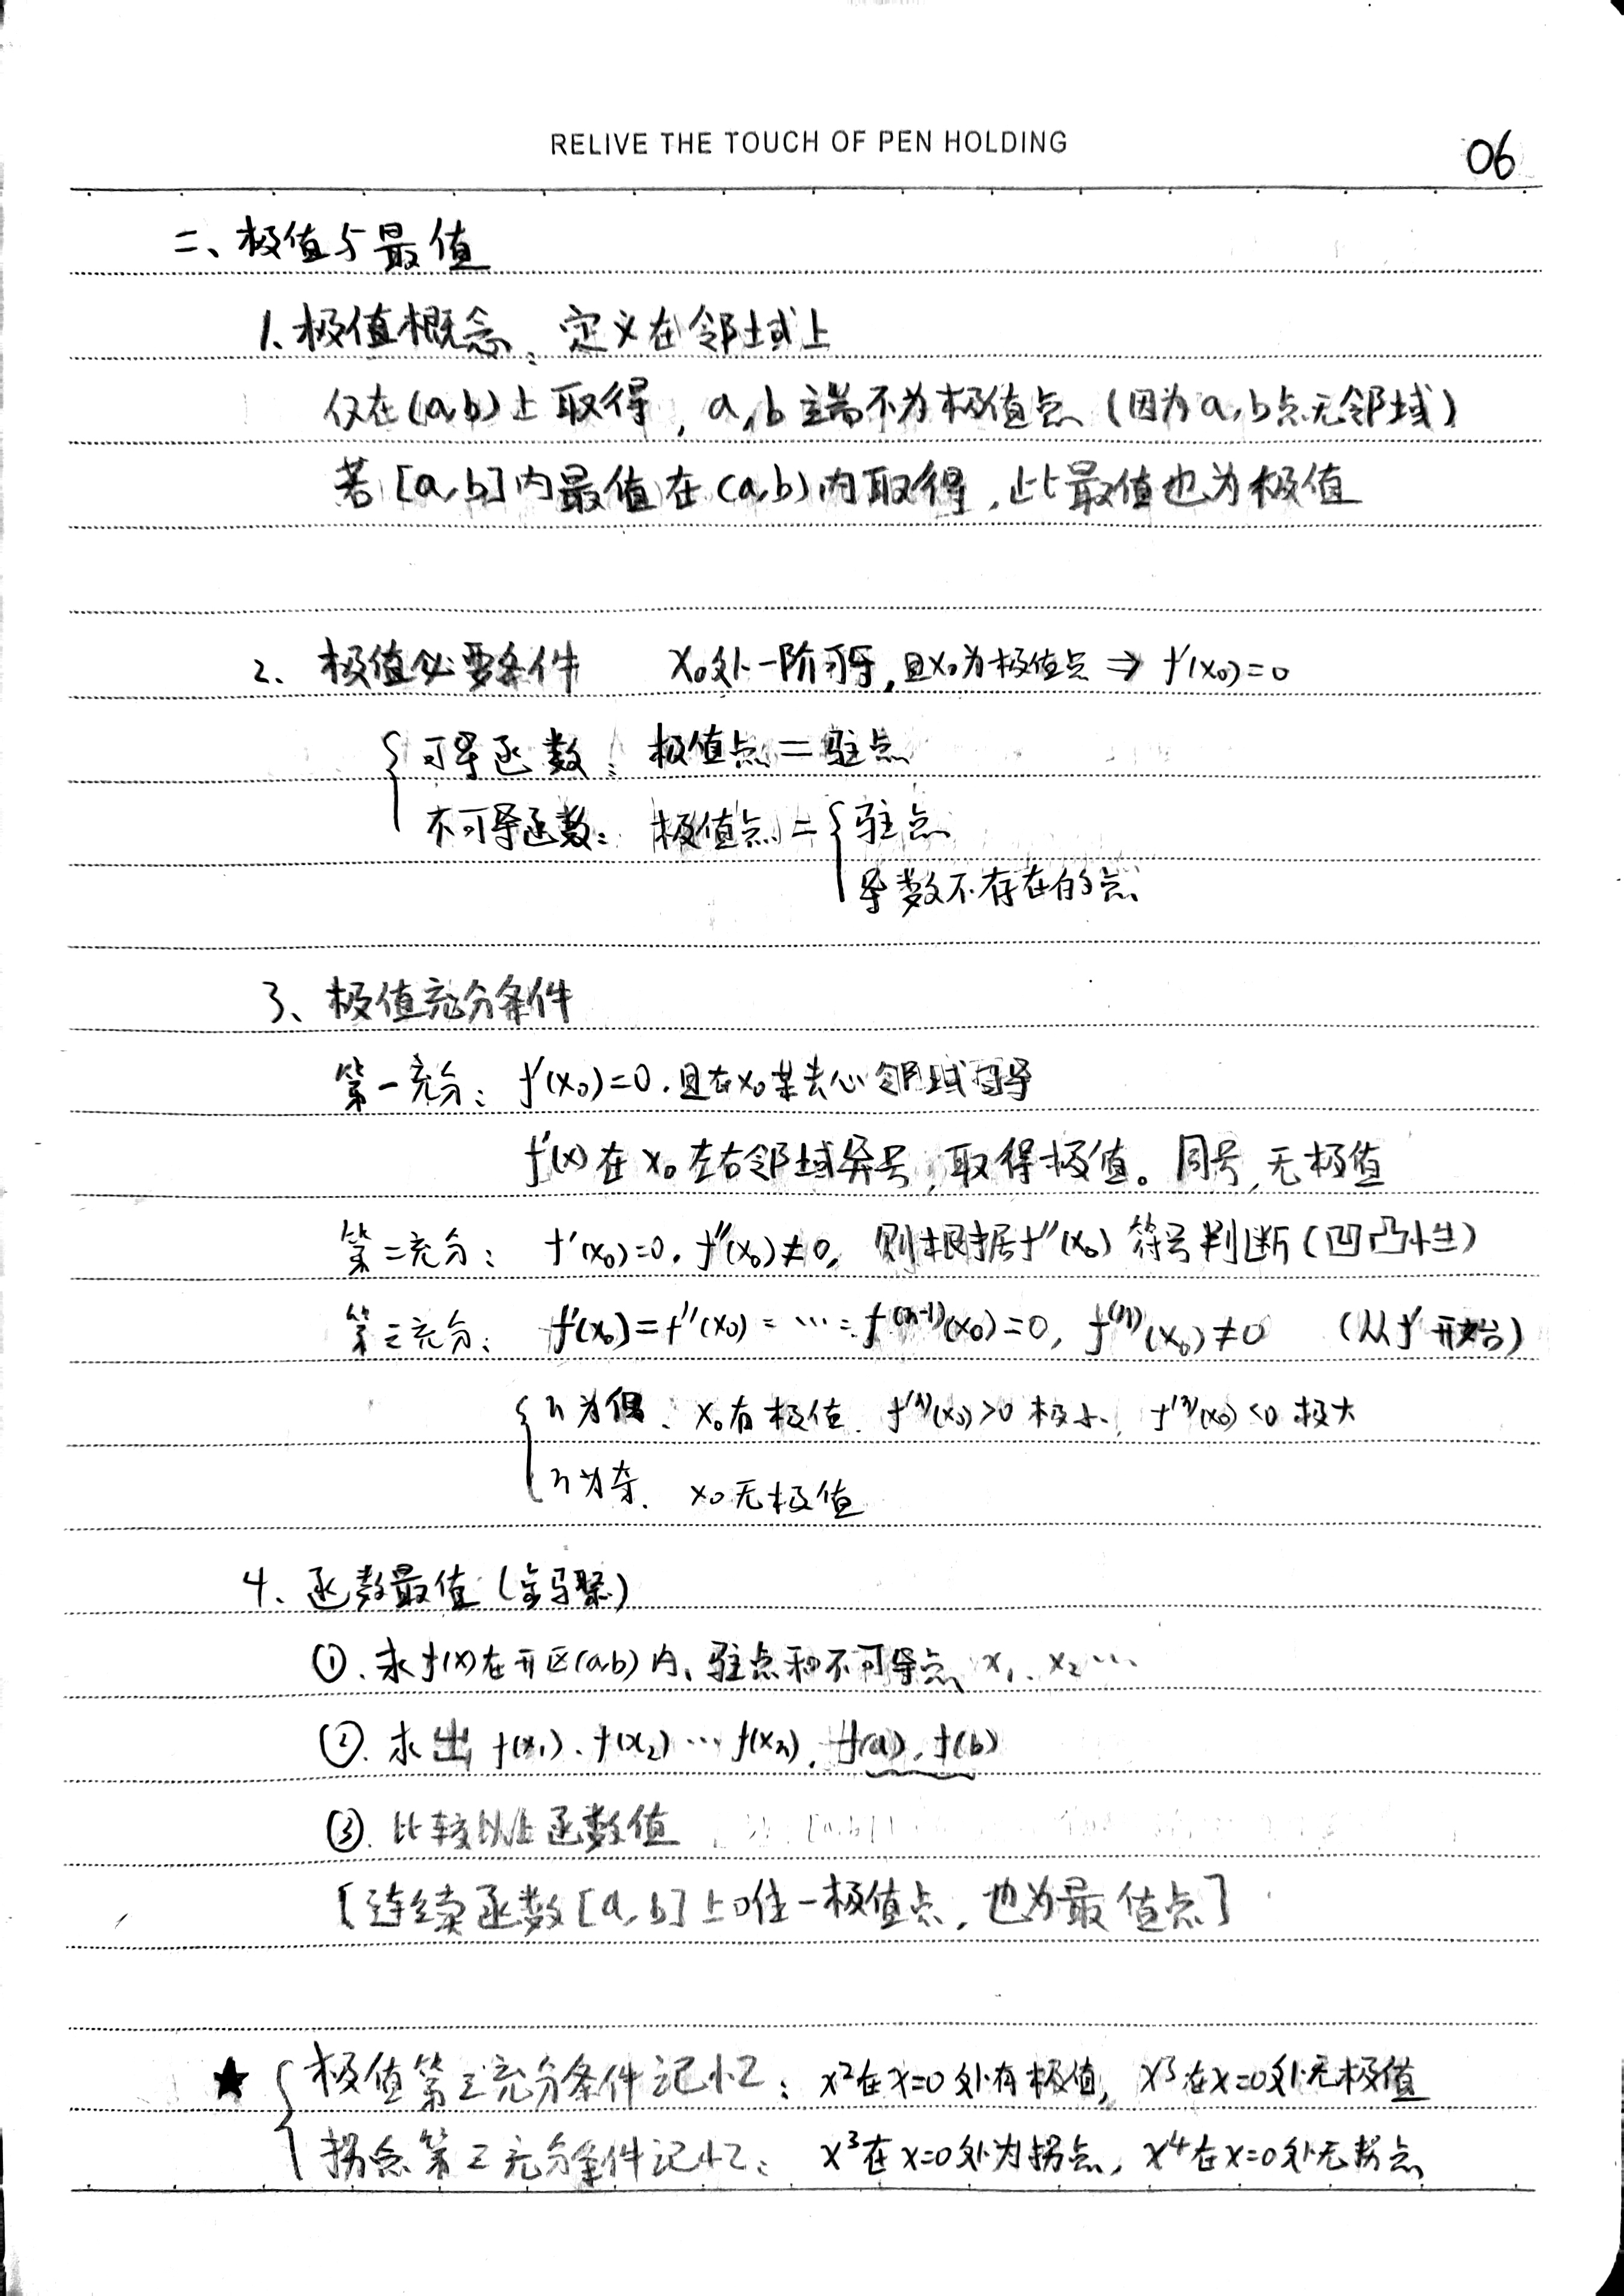 RELIVE THE TOUCH OF PEN HOLDING
06
二、极值与最值
1、极值概念：定义在邻域上
仅在(a,b)上取得，a,b端不为极值点（因为a,b点无邻域）
若[a,b]内最值在(a,b)内取得，此最值也为极值
2、极值必要条件 x₀处一阶可导，且x₀为极值点 ⇒ f'(x₀)=0
可导函数：极值点 = 驻点
不可导函数：极值点 = { 驻点
导数不存在的点
3、极值充分条件
第一充分：f'(x₀)=0，且在x₀某去心邻域可导
f'(x)在x₀左右邻域异号，取得极值。同号，无极值
第二充分：f'(x₀)=0，f''(x₀)≠0，则根据f''(x₀)符号判断（凹凸性）
第三充分：f'(x₀)=f''(x₀)=…=f⁽ⁿ⁻¹⁾(x₀)=0，f⁽ⁿ⁾(x₀)≠0 （从f'开始）
n为偶、x₀有极值、f⁽ⁿ⁾(x₀)>0 极小、f⁽ⁿ⁾(x₀)<0 极大
n为奇、x₀无极值
4、函数最值（步骤）
①、求f(x)在开区(a,b)内、驻点和不可导点 x₁、x₂…
②、求出f(x₁)、f(x₂)…f(xₙ)、f(a)、f(b)
③、比较以上函数值
[连续函数[a,b]上唯一极值点，也为最值点]
★ 极值第三充分条件记忆：x²在x=0处有极值，x³在x=0处无极值
拐点第三充分条件记忆：x³在x=0处为拐点，x⁴在x=0处无拐点